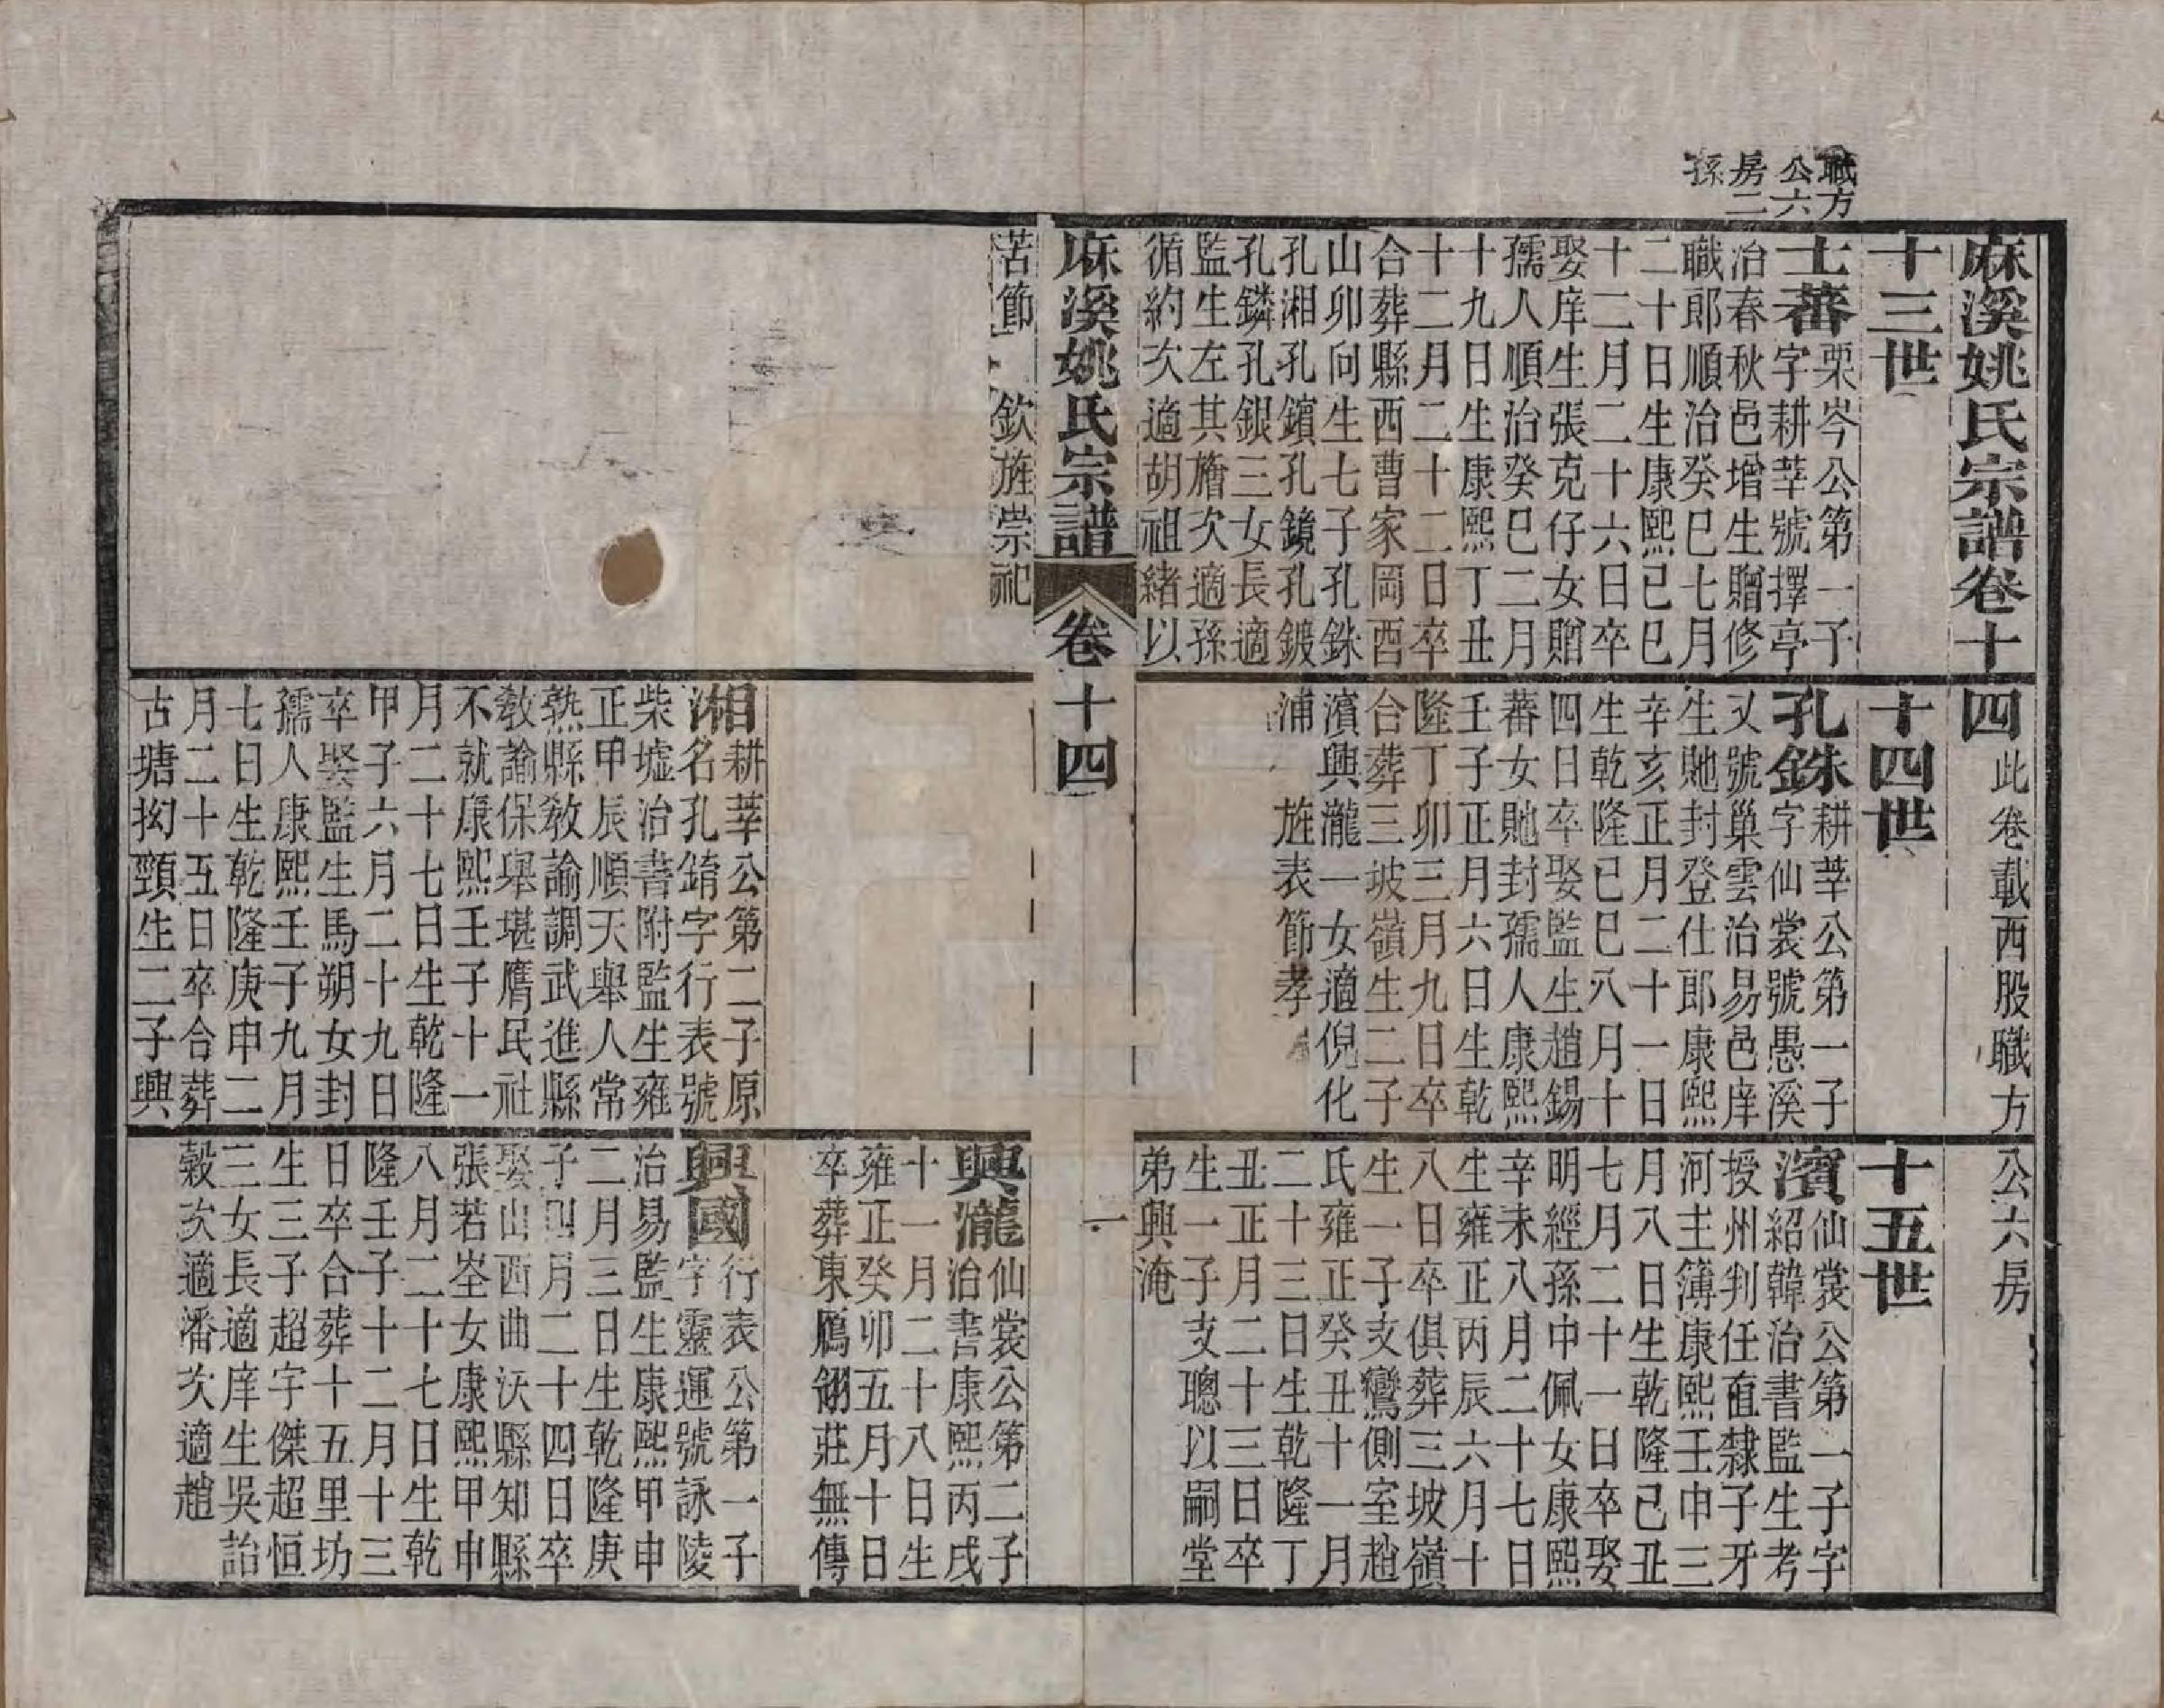 職方
公六
房二
孫
麻溪姚氏宗譜卷十四 此卷載西股職方公六房
十三世
士蕃 栗岑公第一子
字耕莘號擇亭
治春秋邑增生贈修
職郎順治癸巳七月
二十日生康熙己巳
十二月二十六日卒
娶庠生張克仔女贈
孺人順治癸巳二月
十九日生康熙丁丑
十二月二十二日卒
合葬縣西曹家岡酉
山卯向生七子孔銖
孔湘孔鑌孔鏡孔鍍
孔鏻孔銀三女長適
監生左其旝次適孫
循約次適胡祖緒以
苦節
欽旌崇祀
十四世
孔銖 耕莘公第一子
字仙裳號愚溪
又號巢雲治易邑庠
生貤封登仕郎康熙
辛亥正月二十一日
生乾隆己巳八月十
四日卒娶監生趙錫
蕃女貤封孺人康熙
壬子正月六日生乾
隆丁卯三月九日卒
合葬三坡嶺生二子
濱興瀧一女適倪化
浦
旌表節孝
湘 耕莘公第二子原
名孔錥字行表號
柴墟治書附監生雍
正甲辰順天舉人常
熟縣教諭調武進縣
教諭保舉堪膺民社
不就康熙壬子十一
月二十七日生乾隆
甲子六月二十九日
卒娶監生馬朔女封
孺人康熙壬子九月
七日生乾隆庚申二
月二十五日卒合葬
古塘拗頸生二子興
十五世
濱 仙裳公第一子字
紹韓治書監生考
授州判任直隸子牙
河主簿康熙壬申三
月八日生乾隆己丑
七月二十一日卒娶
明經孫申佩女康熙
辛未八月二十七日
生雍正丙辰六月十
八日卒俱葬三坡嶺
生一子支鸞側室趙
氏雍正癸丑十一月
二十三日生乾隆丁
丑正月二十三日卒
生一子支聰以嗣堂
弟興淹
興瀧 仙裳公第二子
治書康熙丙戌
十一月二十八日生
雍正癸卯五月十日
卒葬東鴈翎莊無傳
興國 行表公第一子
字靈運號詠陵
治易監生康熙甲申
二月三日生乾隆庚
子四月二十四日卒
娶山西曲沃縣知縣
張若峑女康熙甲申
八月二十七日生乾
隆壬子十二月十三
日卒合葬十五里坊
生三子超宇傑超恒
三女長適庠生吳詒
穀次適潘次適趙
麻溪姚氏宗譜 卷十四 一